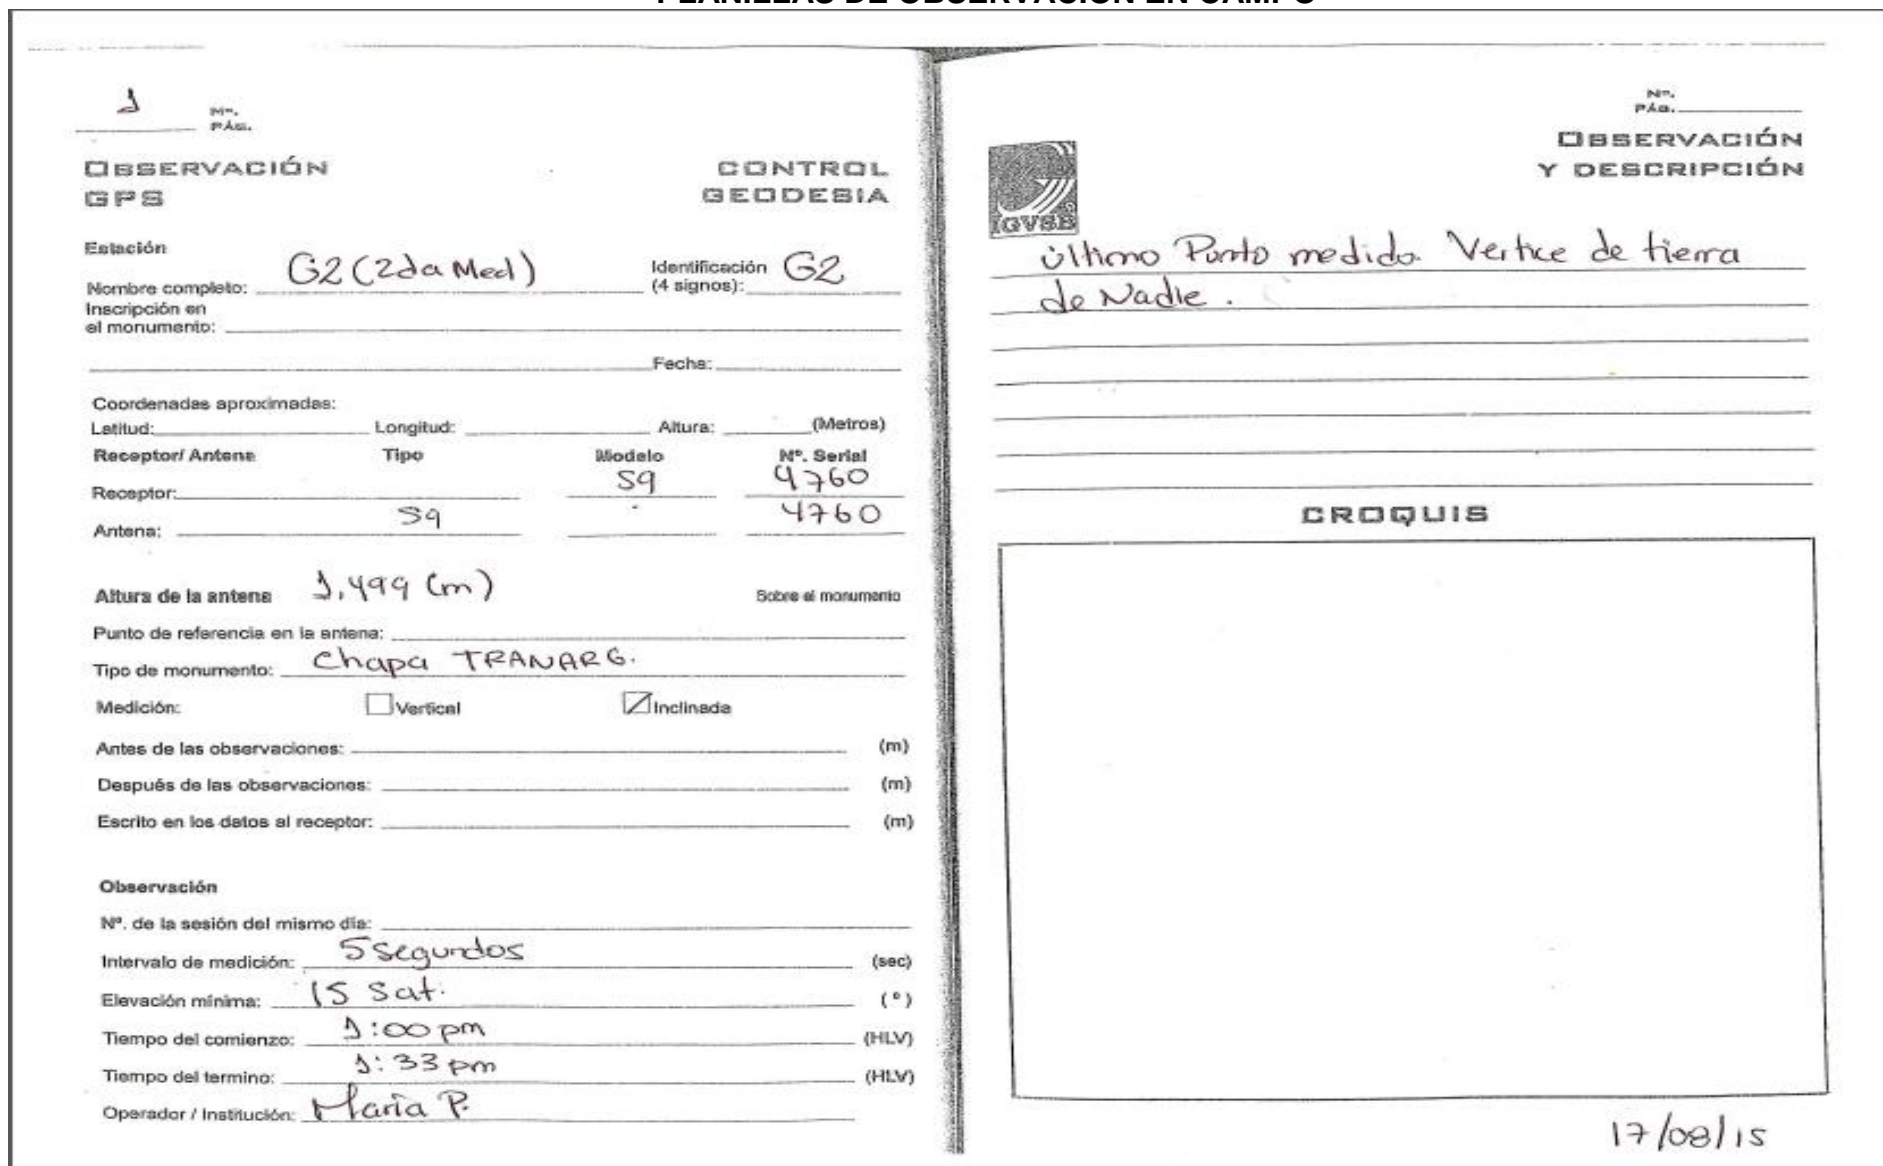 PLANILLAS DE OBSERVACIÓN EN CAMPO
1 Nº.
PÁG.
OBSERVACIÓN CONTROL
GPS GEODESIA
Estación
Nombre completo: G2 (2da Med) Identificación (4 signos): G2
Inscripción en
el monumento:
Fecha:
Coordenadas aproximadas:
Latitud: Longitud: Altura: (Metros)
Receptor/ Antena Tipo Modelo Nº. Serial
Receptor: S9 4760
Antena: S9 4760
Altura de la antena 1,499 (m) Sobre el monumento
Punto de referencia en la antena:
Tipo de monumento: Chapa TRANARG.
Medición: Vertical Inclinada
Antes de las observaciones: (m)
Después de las observaciones: (m)
Escrito en los datos al receptor: (m)
Observación
Nº. de la sesión del mismo día:
Intervalo de medición: 5 segundos (sec)
Elevación mínima: 15 Sat. (º)
Tiempo del comienzo: 1:00 pm (HLV)
Tiempo del termino: 1:33 pm (HLV)
Operador / Institución: María P.
Nº.
PÁG.
OBSERVACIÓN
Y DESCRIPCIÓN
IGVSB
último Punto medido. Vertice de tierra
de Nadie.
CROQUIS
17/08/15